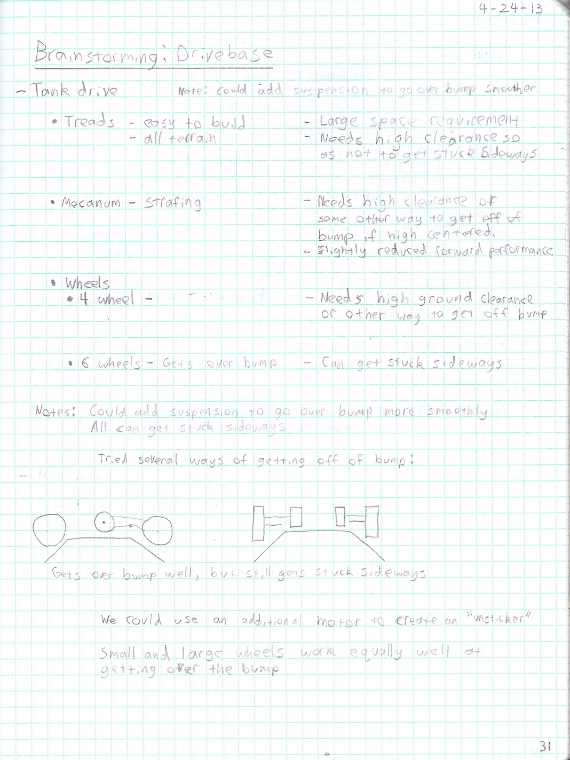 4-24-13
Brainstorming: Drivebase
- Tank drive    Note: Could add suspension to go over bump smoother
• Treads - easy to build    - Large space requirement
- all terrain    - Needs high clearance so
as not to get stuck sideways
• Mecanum - Strafing    - Needs high clearance or
some other way to get off of
bump if high centered.
- Slightly reduced forward performance
• Wheels
• 4 wheel -    - Needs high ground clearance
or other way to get off bump
• 6 wheels - Gets over bump    - Can get stuck sideways
Notes: Could add suspension to go over bump more smoothly
All can get stuck sideways
Tried several ways of getting off of bump:
Gets over bump well, but still gets stuck sideways
We could use an additional motor to create an "unsticker"
Small and large wheels work equally well at
getting over the bump
31